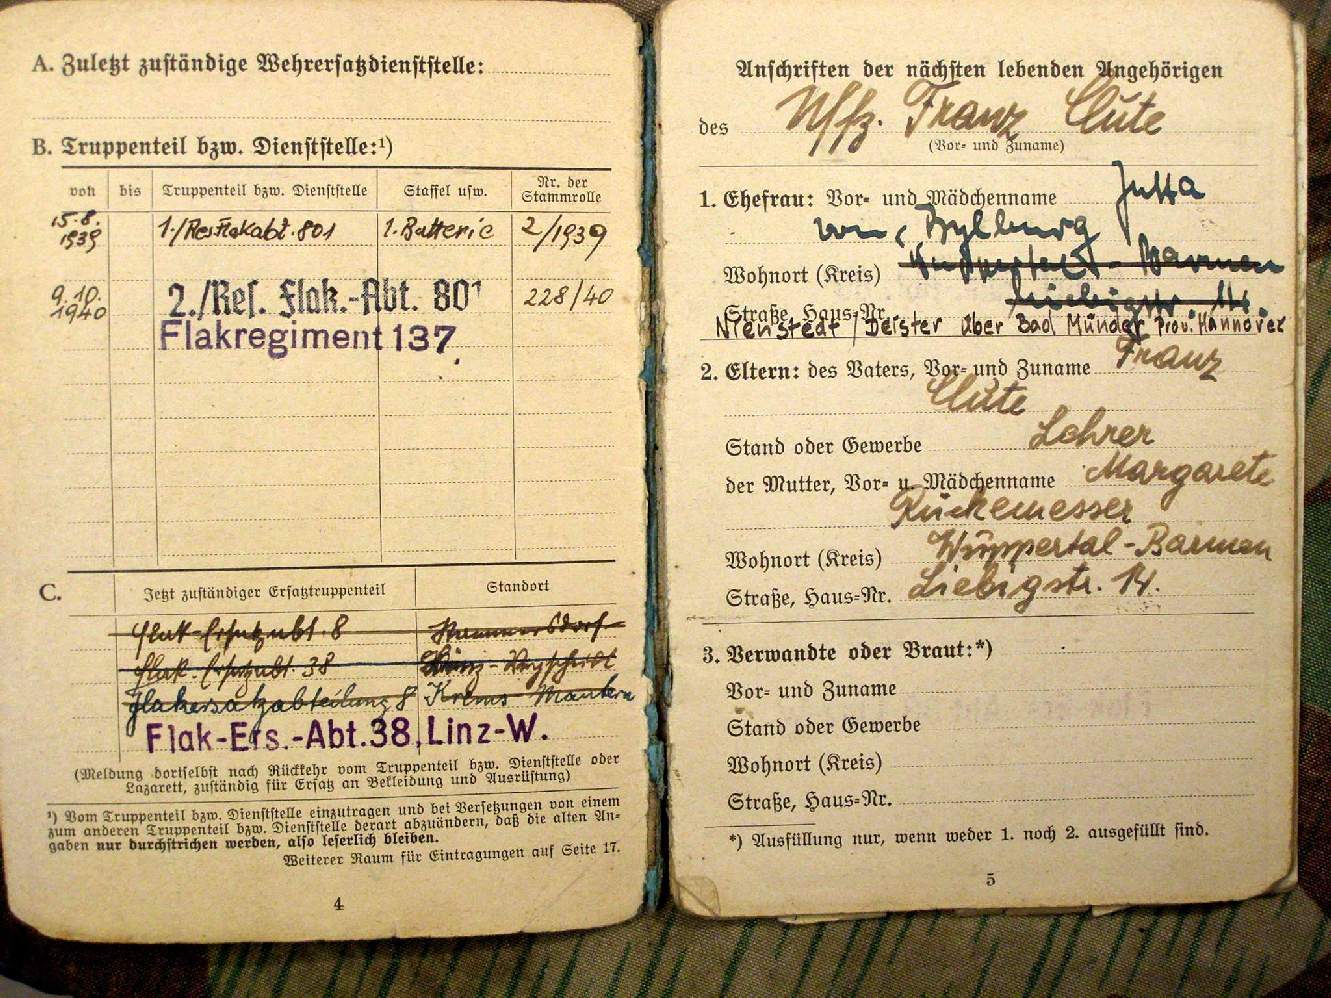 A. Zuletzt zuständige Wehrersatzdienststelle:
B. Truppenteil bzw. Dienststelle:¹)
von bis Truppenteil bzw. Dienststelle Staffel usw. Nr. der Stammrolle
15.8. 1939 1./Res.Flakabt. 801 1. Batterie 2/1939
9.10. 1940 2./Res. Flak.-Abt. 801 228/40
Flakregiment 137
C. Jetzt zuständiger Ersatztruppenteil Standort
Flak-Ersatzabt. 8 Stammersdorf
Flak-Ersatzabt. 38
Flakersatzabteilung 8 Krems-Mautern
Flak-Ers.-Abt. 38, Linz-W.
(Meldung dortselbst nach Rückkehr vom Truppenteil bzw. Dienststelle oder
Lazarett, zuständig für Ersatz an Bekleidung und Ausrüstung)
¹) Vom Truppenteil bzw. Dienststelle einzutragen und bei Versetzungen von einem
zum anderen Truppenteil bzw. Dienststelle derart abzuändern, daß die alten An-
gaben nur durchstrichen werden, also leserlich bleiben.
Weiterer Raum für Eintragungen auf Seite 17.
4
Anschriften der nächsten lebenden Angehörigen
des Uffz. Franz Clüte
(Vor- und Zuname)
1. Ehefrau: Vor- und Mädchenname Jutta
von
Wohnort (Kreis) Wuppertal-Barmen
Straße, Haus-Nr. Liebigstr. 14.
Nienstedt/Deister über Bad Münder Prov. Hannover
2. Eltern: des Vaters, Vor- und Zuname Franz
Clüte
Stand oder Gewerbe Lehrer
der Mutter, Vor- u. Mädchenname Margarete
Rückemesser
Wohnort (Kreis) Wuppertal-Barmen
Straße, Haus-Nr. Liebigstr. 14.
3. Verwandte oder Braut:*)
Vor- und Zuname
Stand oder Gewerbe
Wohnort (Kreis)
Straße, Haus-Nr.
*) Ausfüllung nur, wenn weder 1. noch 2. ausgefüllt sind.
5